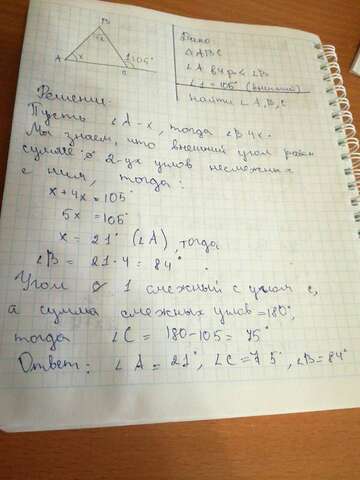 B
4x
A
x
1
105°
C
Дано
△ABC
∠A в 4 р < ∠B
∠1 = 105° (внешний)
Найти ∠A, B, C
Решение:
Пусть ∠A - x, тогда ∠B 4x.
Мы знаем, что внешний угол равен
сумме 2-ух углов несмежных
с ним, тогда:
x + 4x = 105°
5x = 105°
x = 21° (∠A), тогда
∠B = 21 · 4 = 84°
Угол 1 смежный с углом c,
а сумма смежных углов = 180°,
тогда ∠C = 180 - 105 = 75°
Ответ: ∠A = 21°, ∠C = 75°, ∠B = 84°